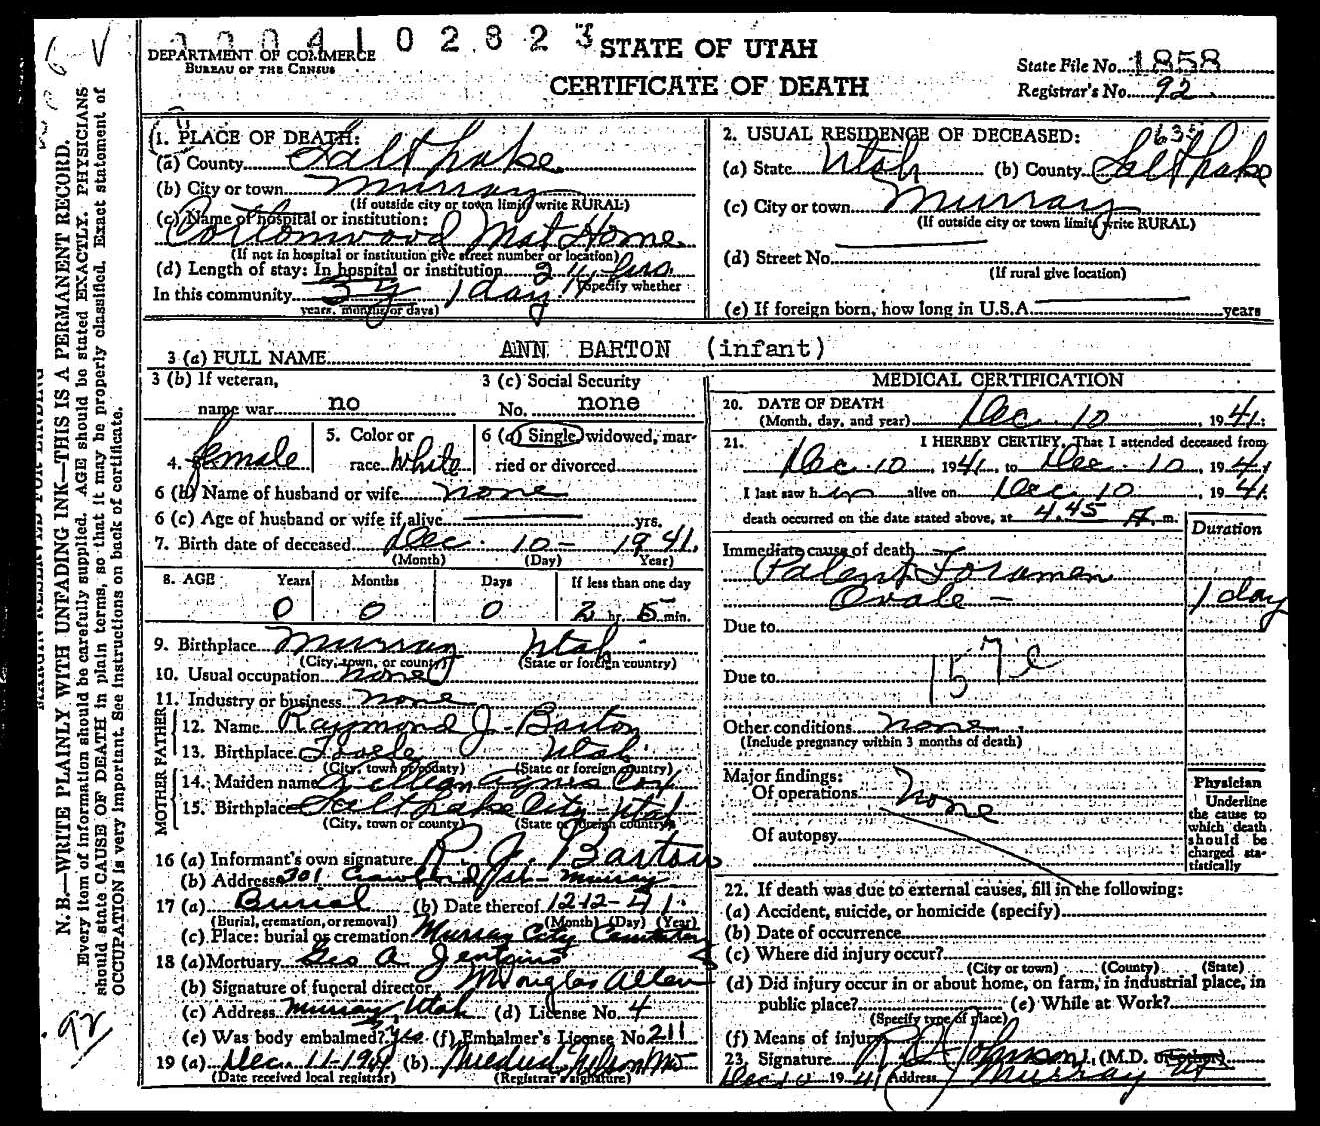 0004102823
STATE OF UTAH
CERTIFICATE OF DEATH
DEPARTMENT OF COMMERCE
BUREAU OF THE CENSUS
State File No. 1858
Registrar's No. 92
N. B.—WRITE PLAINLY WITH UNFADING INK—THIS IS A PERMANENT RECORD.
Every item of information should be carefully supplied. AGE should be stated EXACTLY. PHYSICIANS
should state CAUSE OF DEATH in plain terms, so that it may be properly classified. Exact statement of
OCCUPATION is very important. See instructions on back of certificate.
92
1. PLACE OF DEATH:
(a) County Salt Lake
(b) City or town Murray
(If outside city or town limits write RURAL)
(c) Name of hospital or institution:
Cottonwood Mat Home
(If not in hospital or institution give street number or location)
(d) Length of stay: In hospital or institution 2 hrs.
In this community 1 day
(Specify whether
years, months or days)
2. USUAL RESIDENCE OF DECEASED: 635
(a) State Utah (b) County Salt Lake
(c) City or town Murray
(If outside city or town limits write RURAL)
(d) Street No.
(If rural give location)
(e) If foreign born, how long in U.S.A. years
3 (a) FULL NAME ANN BARTON (infant)
3 (b) If veteran,
name war no
3 (c) Social Security
No. none
4. female
5. Color or
race White
6 (a) Single, widowed, mar-
ried or divorced
6 (b) Name of husband or wife none
6 (c) Age of husband or wife if alive yrs.
7. Birth date of deceased Dec. 10 - 1941.
(Month) (Day) (Year)
8. AGE Years Months Days If less than one day
0 0 0 2 hr. 5 min.
9. Birthplace Murray Utah
(City, town, or county) (State or foreign country)
10. Usual occupation none
11. Industry or business none
FATHER
12. Name Raymond J. Barton
13. Birthplace Tooele Utah
(City, town or county) (State or foreign country)
MOTHER
14. Maiden name Cox
15. Birthplace Salt Lake City Utah
(City, town or county) (State or foreign country)
16 (a) Informant's own signature R. J. Barton
(b) Address 301 Crawford St - Murray
17 (a) Burial (b) Date thereof 12-12-41.
(Burial, cremation, or removal) (Month) (Day) (Year)
(c) Place: burial or cremation Murray City Cemetery
18 (a) Mortuary Geo A. Jenkins
(b) Signature of funeral director M Douglas Allen
(c) Address Murray, Utah (d) License No. 4
(e) Was body embalmed? yes (f) Embalmer's License No. 211
19 (a) Dec. 11-1941 (b)
(Date received local registrar) (Registrar's signature)
MEDICAL CERTIFICATION
20. DATE OF DEATH
(Month, day, and year) Dec. 10, 1941.
21. I HEREBY CERTIFY, That I attended deceased from
Dec. 10, 1941, to Dec. 10, 1941
I last saw h alive on Dec. 10, 1941.
death occurred on the date stated above, at 4.45 A. m.
Duration
Immediate cause of death
Patent Foramen
Ovale - 1 day
Due to
157e
Due to
Other conditions none
(Include pregnancy within 3 months of death)
Major findings:
Of operations none
Of autopsy
Physician
Underline
the cause to
which death
should be
charged sta-
tistically
22. If death was due to external causes, fill in the following:
(a) Accident, suicide, or homicide (specify)
(b) Date of occurrence
(c) Where did injury occur?
(City or town) (County) (State)
(d) Did injury occur in or about home, on farm, in industrial place, in
public place? (e) While at Work?
(Specify type of place)
(f) Means of injury
23. Signature Johnson, (M.D. or other)
Dec 10 1941 Address Murray Ut